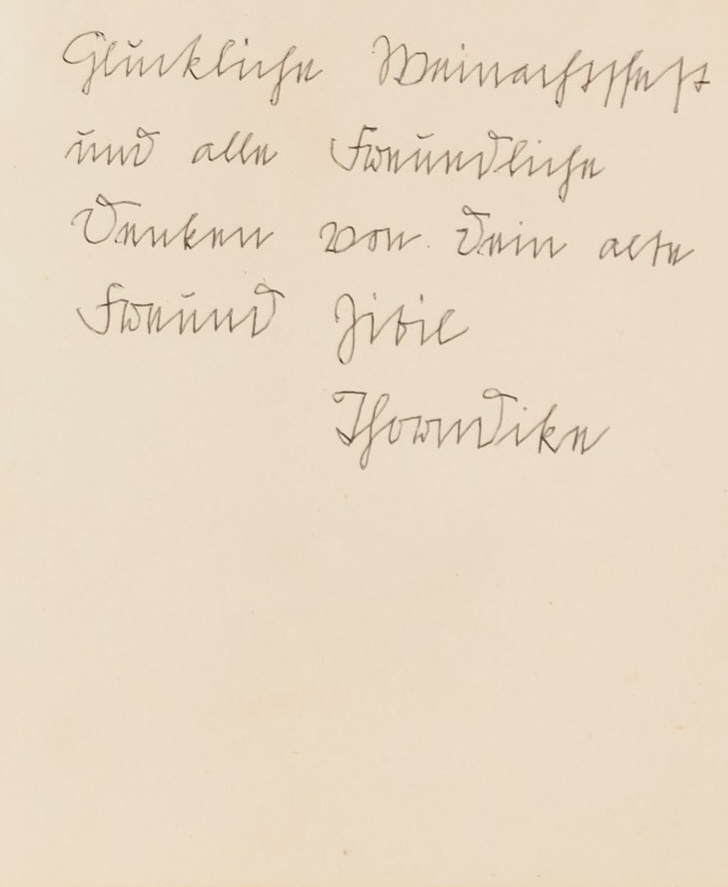 Glückliche Weinachtsfest
und alle Freundliche
Denken von Dein alte
Freund Sibil
Thorndike